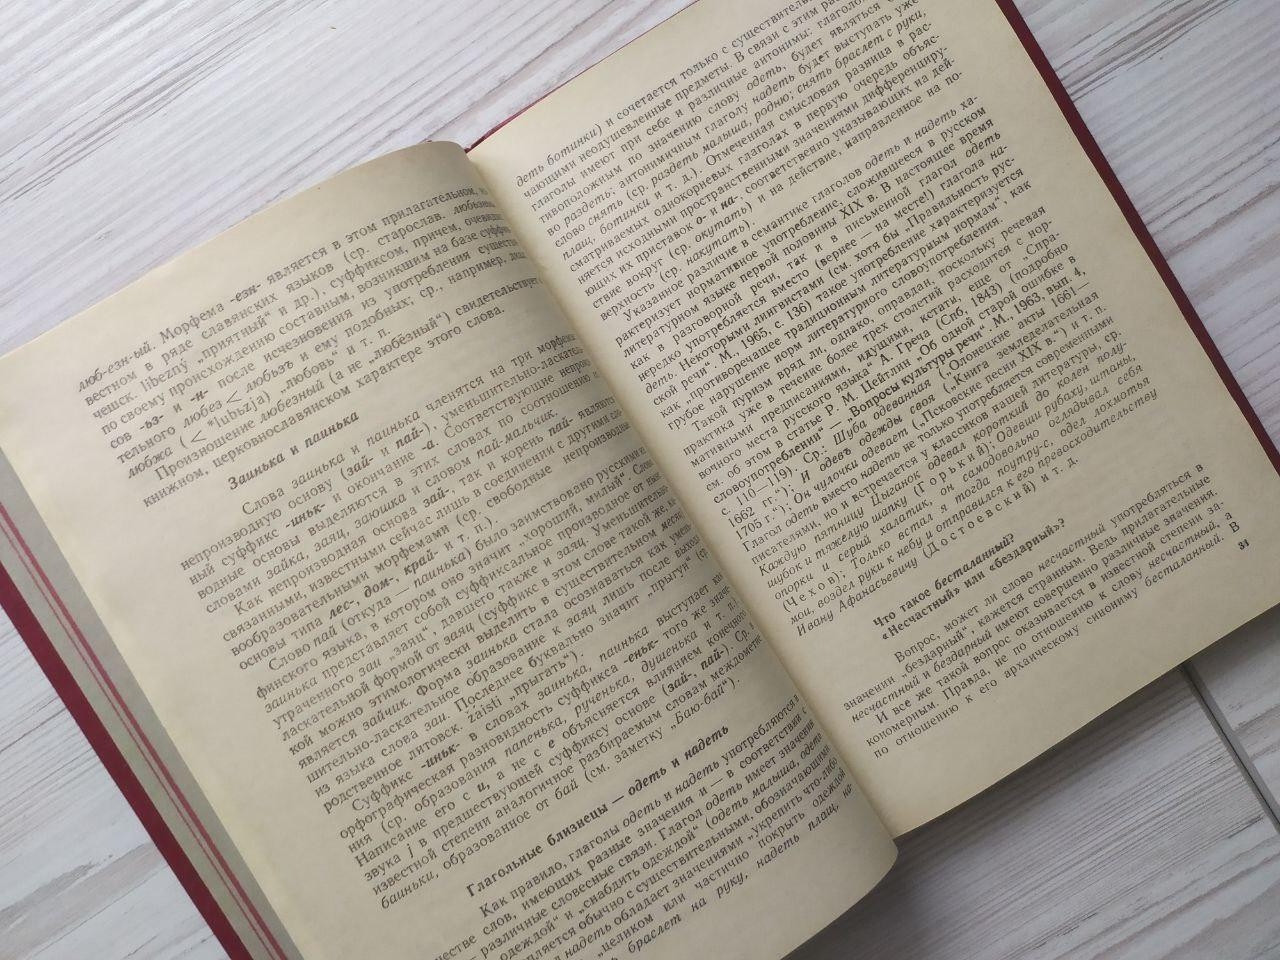 люб-езн-ый. Морфема -езн- является в этом прилагательном,
вестном в ряде славянских языков (ср. старослав.
чешск. libezný „приятный“ и др.), суффиксом, причем,
по своему происхождению составным, возникшим на базе
сов -ьз- и -н- после исчезновения из употребления
тельного любез < любьзъ и ему подобных; ср., например,
любжа (< *lubszja) „любовь“ и т. п.
Произношение любезный (а не „любёзный“) свидетельствует
книжном, церковнославянском характере этого слова.
Заинька и паинька
Слова заинька и паинька членятся на три морфемы:
непроизводную основу (зай- и пай-), уменьшительно-ласкательный
суффикс -иньк- и окончание -а. Соответствующие
водные основы выделяются в этих словах по соотношению
словами зайка, заяц, заюшка и словом пай-мальчик.
Как непроизводная основа зай-, так и корень пай- являются
связанными, известными сейчас лишь в соединении с другими
вообразовательными морфемами (ср. свободные
основы типа лес-, дом-, край- и т. п.).
Слово пай (откуда — паинька) было заимствовано русскими из
финского языка, в котором оно значит „хороший, милый“. Слово
заинька представляет собой суффиксальное производное от
утраченного заи „заяц“, давшего также и заяц. Уменьшительно-
ласкательной формой от заяц (суффикс в этом слове такой же,
кой можно этимологически выделить в существительном месяц)
является зайчик. Форма заинька стала осознаваться как
шительно-ласкательное образование к заяц лишь после
из языка слова заи. Последнее буквально значит „прыгун“
родственное литовск. žaisti „прыгать“).
Суффикс -иньк- в словах заинька, паинька выступает как
орфографическая разновидность суффикса -еньк- того же
ния (ср. образования папенька, рученька, душенька и т. п.).
Написание его с и, а не с е объясняется влиянием конечного
звука j в предшествующей суффиксу основе (зай-, пай-). Ср.
известной степени аналогичное разбираемым словам
баиньки, образованное от бай (см. заметку „Баю-бай“).
Глагольные близнецы — одеть и надеть
Как правило, глаголы одеть и надеть употребляются
честве слов, имеющих разные значения и — в соответствии с
— различные словесные связи. Глагол одеть имеет значения
одеждой“ и „снабдить одеждой“ (одеть малыша,
обычно с существительными, обозначающими
надеть обладает значениями „укрепить что-либо
„целиком или частично покрыть одеждой
браслет на руку, надеть плащ,
деть ботинки) и сочетается только с
чающими неодушевленные предметы. В связи с этим
глаголы имеют при себе и различные антонимы:
тивоположным по значению слову одеть, будет являться
во раздеть; антонимичным глаголу надеть будет выступать уже
слово снять (ср. раздеть малыша, родню; снять браслет с руки,
плащ, ботинки и т. д.). Отмеченная смысловая разница в рас-
сматриваемых однокорневых глаголах в первую очередь объяс-
няется исходными пространственными значениями дифференциру-
ющих их приставок о- и на-, соответственно указывающих на дей-
ствие вокруг (ср. окутать) и на действие, направленное на по-
верхность (ср. накутать).
Указанное различие в семантике глаголов одеть и надеть ха-
рактеризует нормативное употребление, сложившееся в русском
литературном языке первой половины XIX в. В настоящее время
как в разговорной речи, так и в письменной глагол одеть
нередко употребляется вместо (вернее — на месте!) глагола на-
деть. Некоторыми лингвистами (см. хотя бы „Правильность рус-
ской речи“. М., 1965, с. 136) такое употребление характеризуется
как „противоречащее традиционным литературным нормам“, как
грубое нарушение норм литературного словоупотребления.
Такой пуризм вряд ли, однако, оправдан, поскольку речевая
практика уже в течение более трех столетий расходится с нор-
мативными предписаниями, идущими, кстати, еще от „Спра-
вочного места русского языка“ А. Греча (Спб, 1843) (подробно
см. об этом в статье Р. М. Цейтлин „Об одной старой ошибке в
словоупотреблении“ — „Вопросы культуры речи“. М., 1963, вып. 4,
с. 110—119). Ср.: Шуба одеванная („Олонецкие акты 1661—
1662 г.“); И одевъ одежды своя („Книга земледелательная
1705 г.“); Он чулочки одевает („Псковские песни XIX в.“) и т. п.
Глагол одеть вместо надеть не только употребляется современными
писателями, но и встречается у классиков нашей литературы, ср.
Каждую пятницу Цыганок одевал короткий до колен полу-
шубок и тяжелую шапку (Горький); Одевши рубаху, штаны,
опорки и серый халатик, он самодовольно оглядывал себя
(Чехов); Только встал я тогда поутру-с, одел лохмотья
мои, воздел руки к небу и отправился к его превосходительству
Ивану Афанасьевичу (Достоевский) и т. д.
Что такое бесталанный?
«Несчастный» или «бездарный»?
Вопрос, может ли слово несчастный употребляться в
значении „бездарный“, кажется странным. Ведь прилагательные
несчастный и бездарный имеют совершенно различные значения.
И все же такой вопрос оказывается в известной степени за-
кономерным. Правда, не по отношению к слову несчастный, а
по отношению к его архаическому синониму бесталанный. В
31